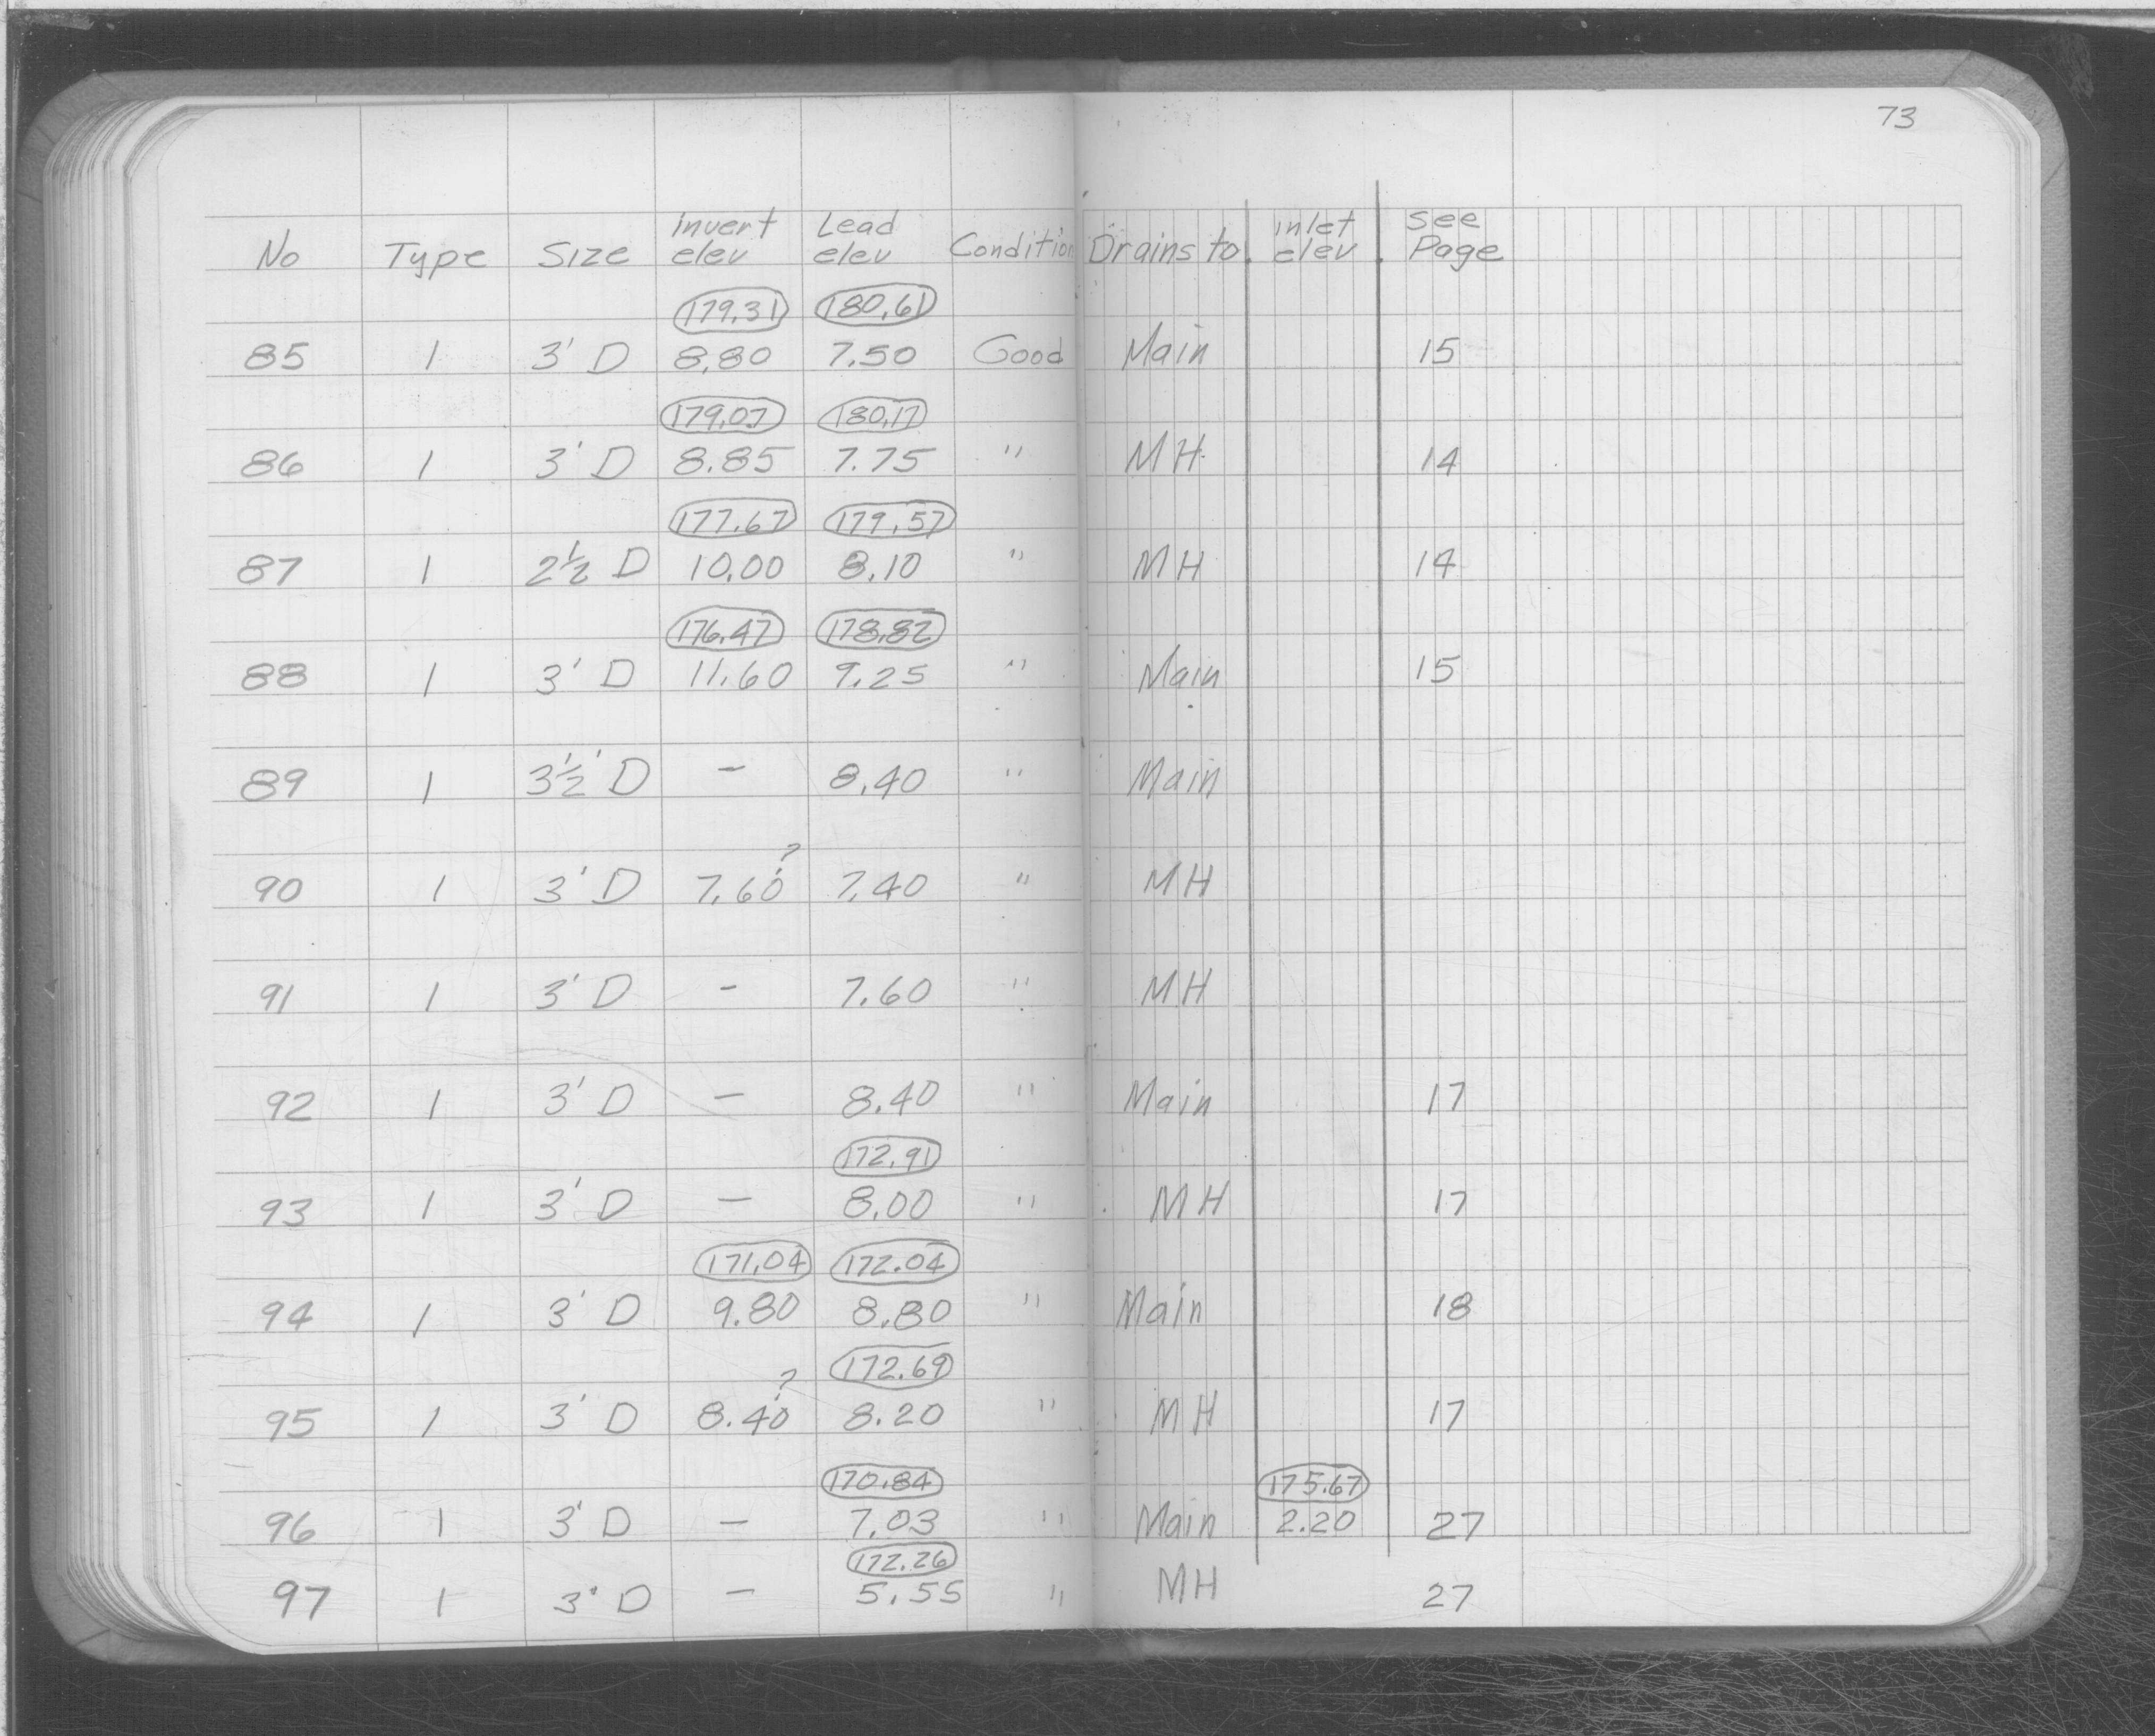 73
No Type Size Invert elev Lead elev Condition Drains to inlet elev See Page
179.31 180.61
85 1 3' D 8.80 7.50 Good Main 15
179.07 180.17
86 1 3' D 8.85 7.75 " MH 14
177.67 179.57
87 1 2½ D 10.00 8.10 " MH 14
176.47 178.82
88 1 3' D 11.60 9.25 " Main 15
89 1 3½' D - 8.40 " Main
90 1 3' D 7.60? 7.40 " MH
91 1 3' D - 7.60 " MH
92 1 3' D - 8.40 " Main 17
172.91
93 1 3' D - 8.00 " MH 17
171.04 172.04
94 1 3' D 9.80 8.80 " Main 18
172.69
95 1 3' D 8.40? 8.20 " MH 17
170.84 175.67
96 1 3' D - 7.03 " Main 2.20 27
172.26
97 1 3' D - 5.55 " MH 27